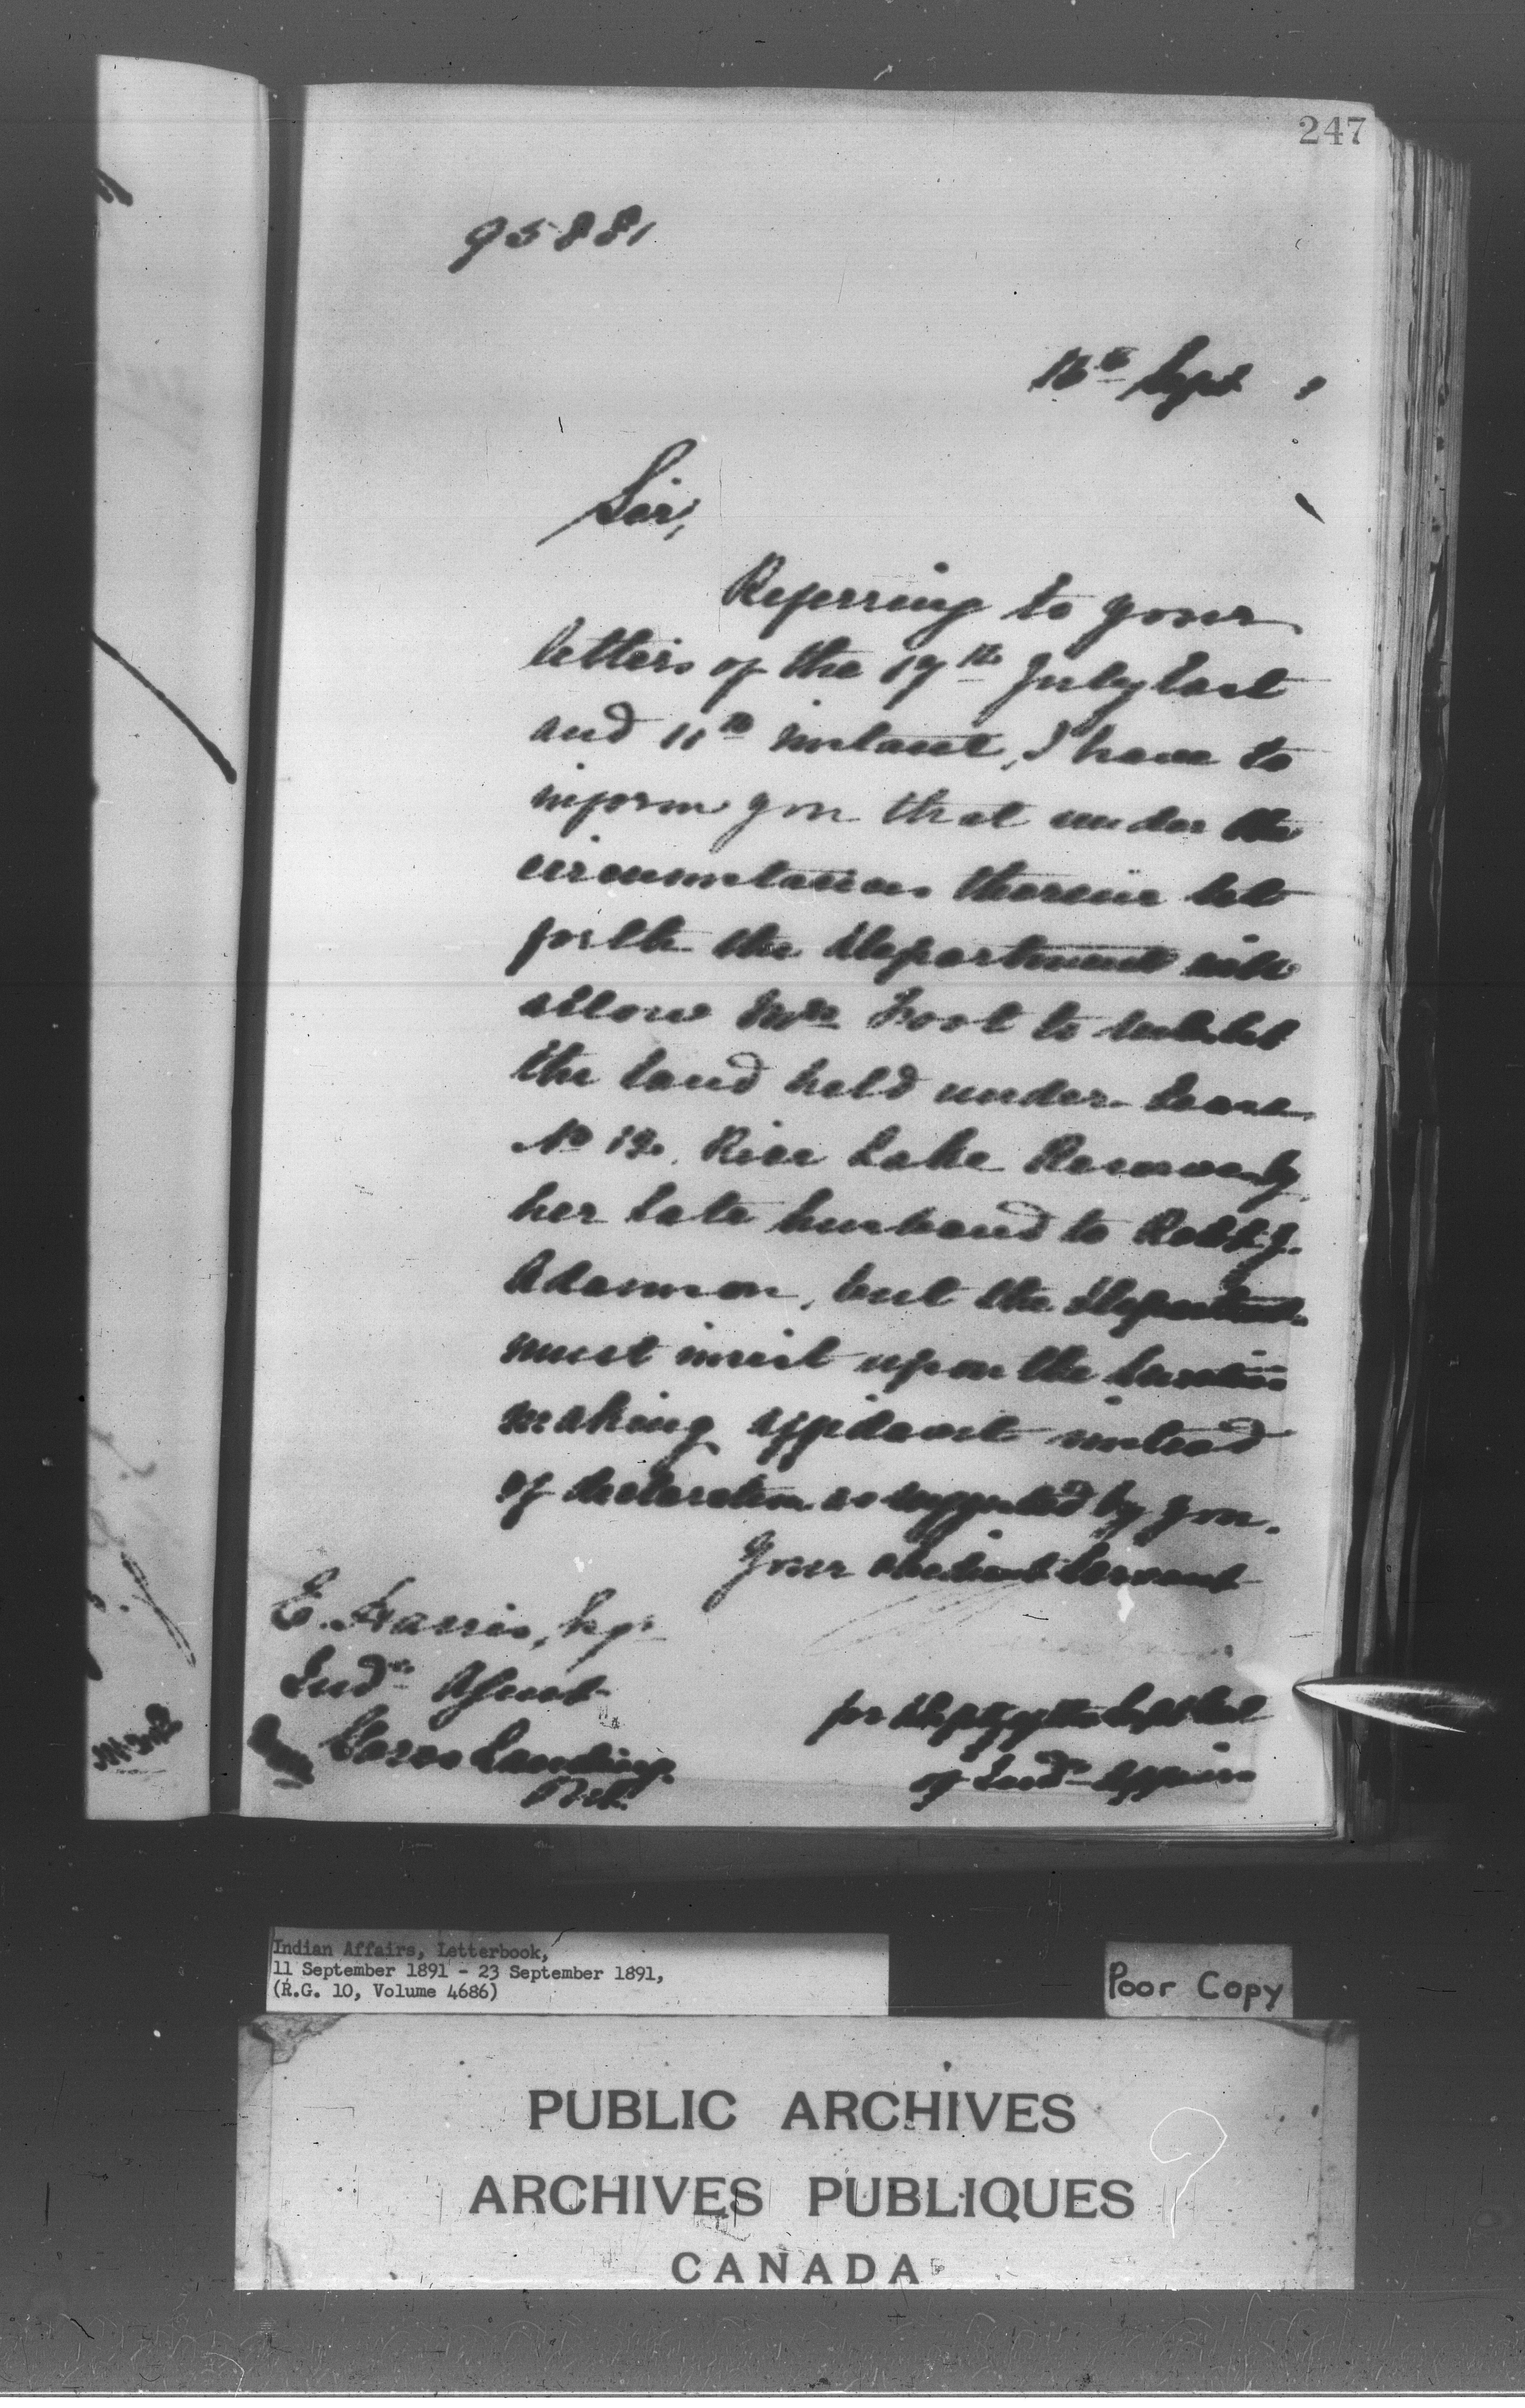 247
95881
16th Sept 1
Sir,
Referring to your
letters of the 17th July last
and 11th instant, I have to
inform you that under the
circumstances therein set
forth the Department will
allow Mrs Foot to sublet
the land held under Lease
No 12. Rice Lake Reserve by
her late husband to Robt J.
Adamson, but the Department
must insist upon the
making affidavit instead
of declaration as suggested by you.
Your obedient Servant
E. Harris, Esq.
Indn Agent
Gores Landing
Ont.
for Deputy of the Supt Genl
of Indn Affairs
Indian Affairs, Letterbook,
11 September 1891 - 23 September 1891,
(R.G. 10, Volume 4686)
Poor Copy
PUBLIC ARCHIVES
ARCHIVES PUBLIQUES
CANADA